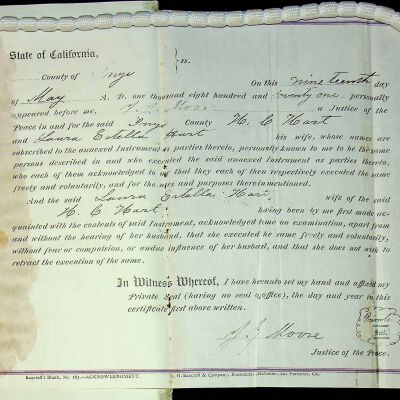 State of California,
County of Inyo } ss.
On this nineteenth day
of May A. D. one thousand eight hundred and seventy one personally
appeared before me, J. J. Moore a Justice of the
Peace in and for the said Inyo County H. C. Hart
and Laura Estella Hart his wife, whose names are
subscribed to the annexed Instrument as parties thereto, personally known to me to be the same
persons described in and who executed the said annexed Instrument as parties thereto,
who each of them acknowledged to me that they each of them respectively executed the same
freely and voluntarily, and for the uses and purposes therein mentioned.
And the said Laura Estella Hart, wife of the said
H. C. Hart having been by me first made ac-
quainted with the contents of said Instrument, acknowledged to me on examination, apart from
and without the hearing of her husband, that she executed the same freely and voluntarily,
without fear or compulsion, or undue influence of her husband, and that she does not wish to
retract the execution of the same.
In Witness Whereof, I have hereunto set my hand and affixed my
Private Seal (having no seal of office), the day and year in this
certificate first above written.
Private
Seal.
J. J. Moore
Justice of the Peace.
Bancroft's Blank, No. 167.—ACKNOWLEDGMENT. H. Bancroft & Company, Booksellers and Stationers, San Francisco, Cal.